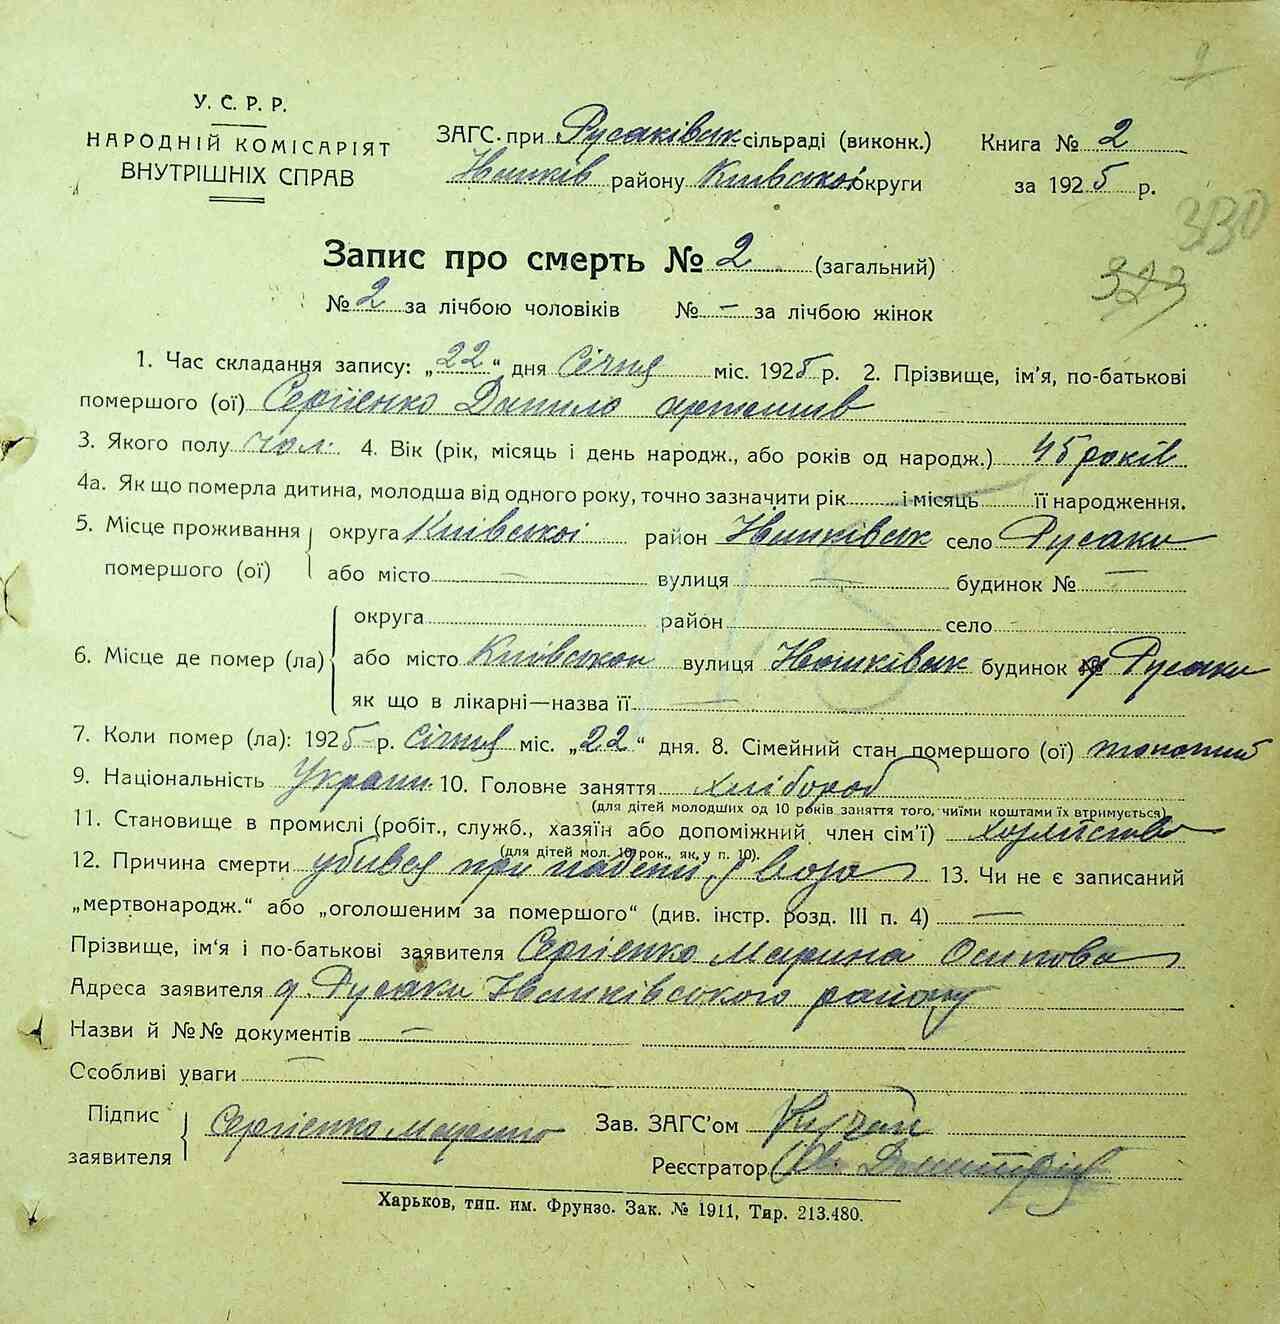 У. С. Р. Р.
НАРОДНІЙ КОМІСАРІЯТ
ВНУТРІШНІХ СПРАВ
ЗАГС при Русаківськ сільраді (виконк.)
району Київської округи
Книга № 2
за 1925 р.
330
323
Запис про смерть № 2 (загальний)
№ 2 за лічбою чоловіків № — за лічбою жінок
1. Час складання запису: „22“ дня Січня міс. 1925 р. 2. Прізвище, ім'я, по-батькові
помершого (ої) Сергіенко Данило
3. Якого полу чол. 4. Вік (рік, місяць і день народж., або років од народж.) 45 років
4а. Як що померла дитина, молодша від одного року, точно зазначити рік — і місяць — її народження.
5. Місце проживання округа Київської район Іванківськ село Русаки
помершого (ої) або місто — вулиця — будинок № —
округа район село
6. Місце де помер (ла) або місто Київської вулиця Іванківськ будинок № Русаки
як що в лікарні—назва її —
7. Коли помер (ла): 1925 р. Січня міс. „22“ дня. 8. Сімейний стан помершого (ої)
9. Національність Україн. 10. Головне заняття хлібороб
(для дітей молодших од 10 років заняття того, чиїми коштами їх втримується)
11. Становище в промислі (робіт., служб., хазяїн або допоміжний член сім'ї)
(для дітей мол. 10 рок., як, у п. 10).
12. Причина смерти убився при падені з воза 13. Чи не є записаний
„мертвонародж.“ або „оголошеним за помершого“ (див. інстр. розд. III п. 4) —
Прізвище, ім'я і по-батькові заявителя Сергіенко Марина Осипова
Адреса заявителя Русаки Іванківського району
Назви й №№ документів —
Особливі уваги —
Підпис
заявителя Сергіенко Марина
Зав. ЗАГС'ом
Реєстратор
Харьков, тип. им. Фрунзе. Зак. № 1911, Тир. 213.480.